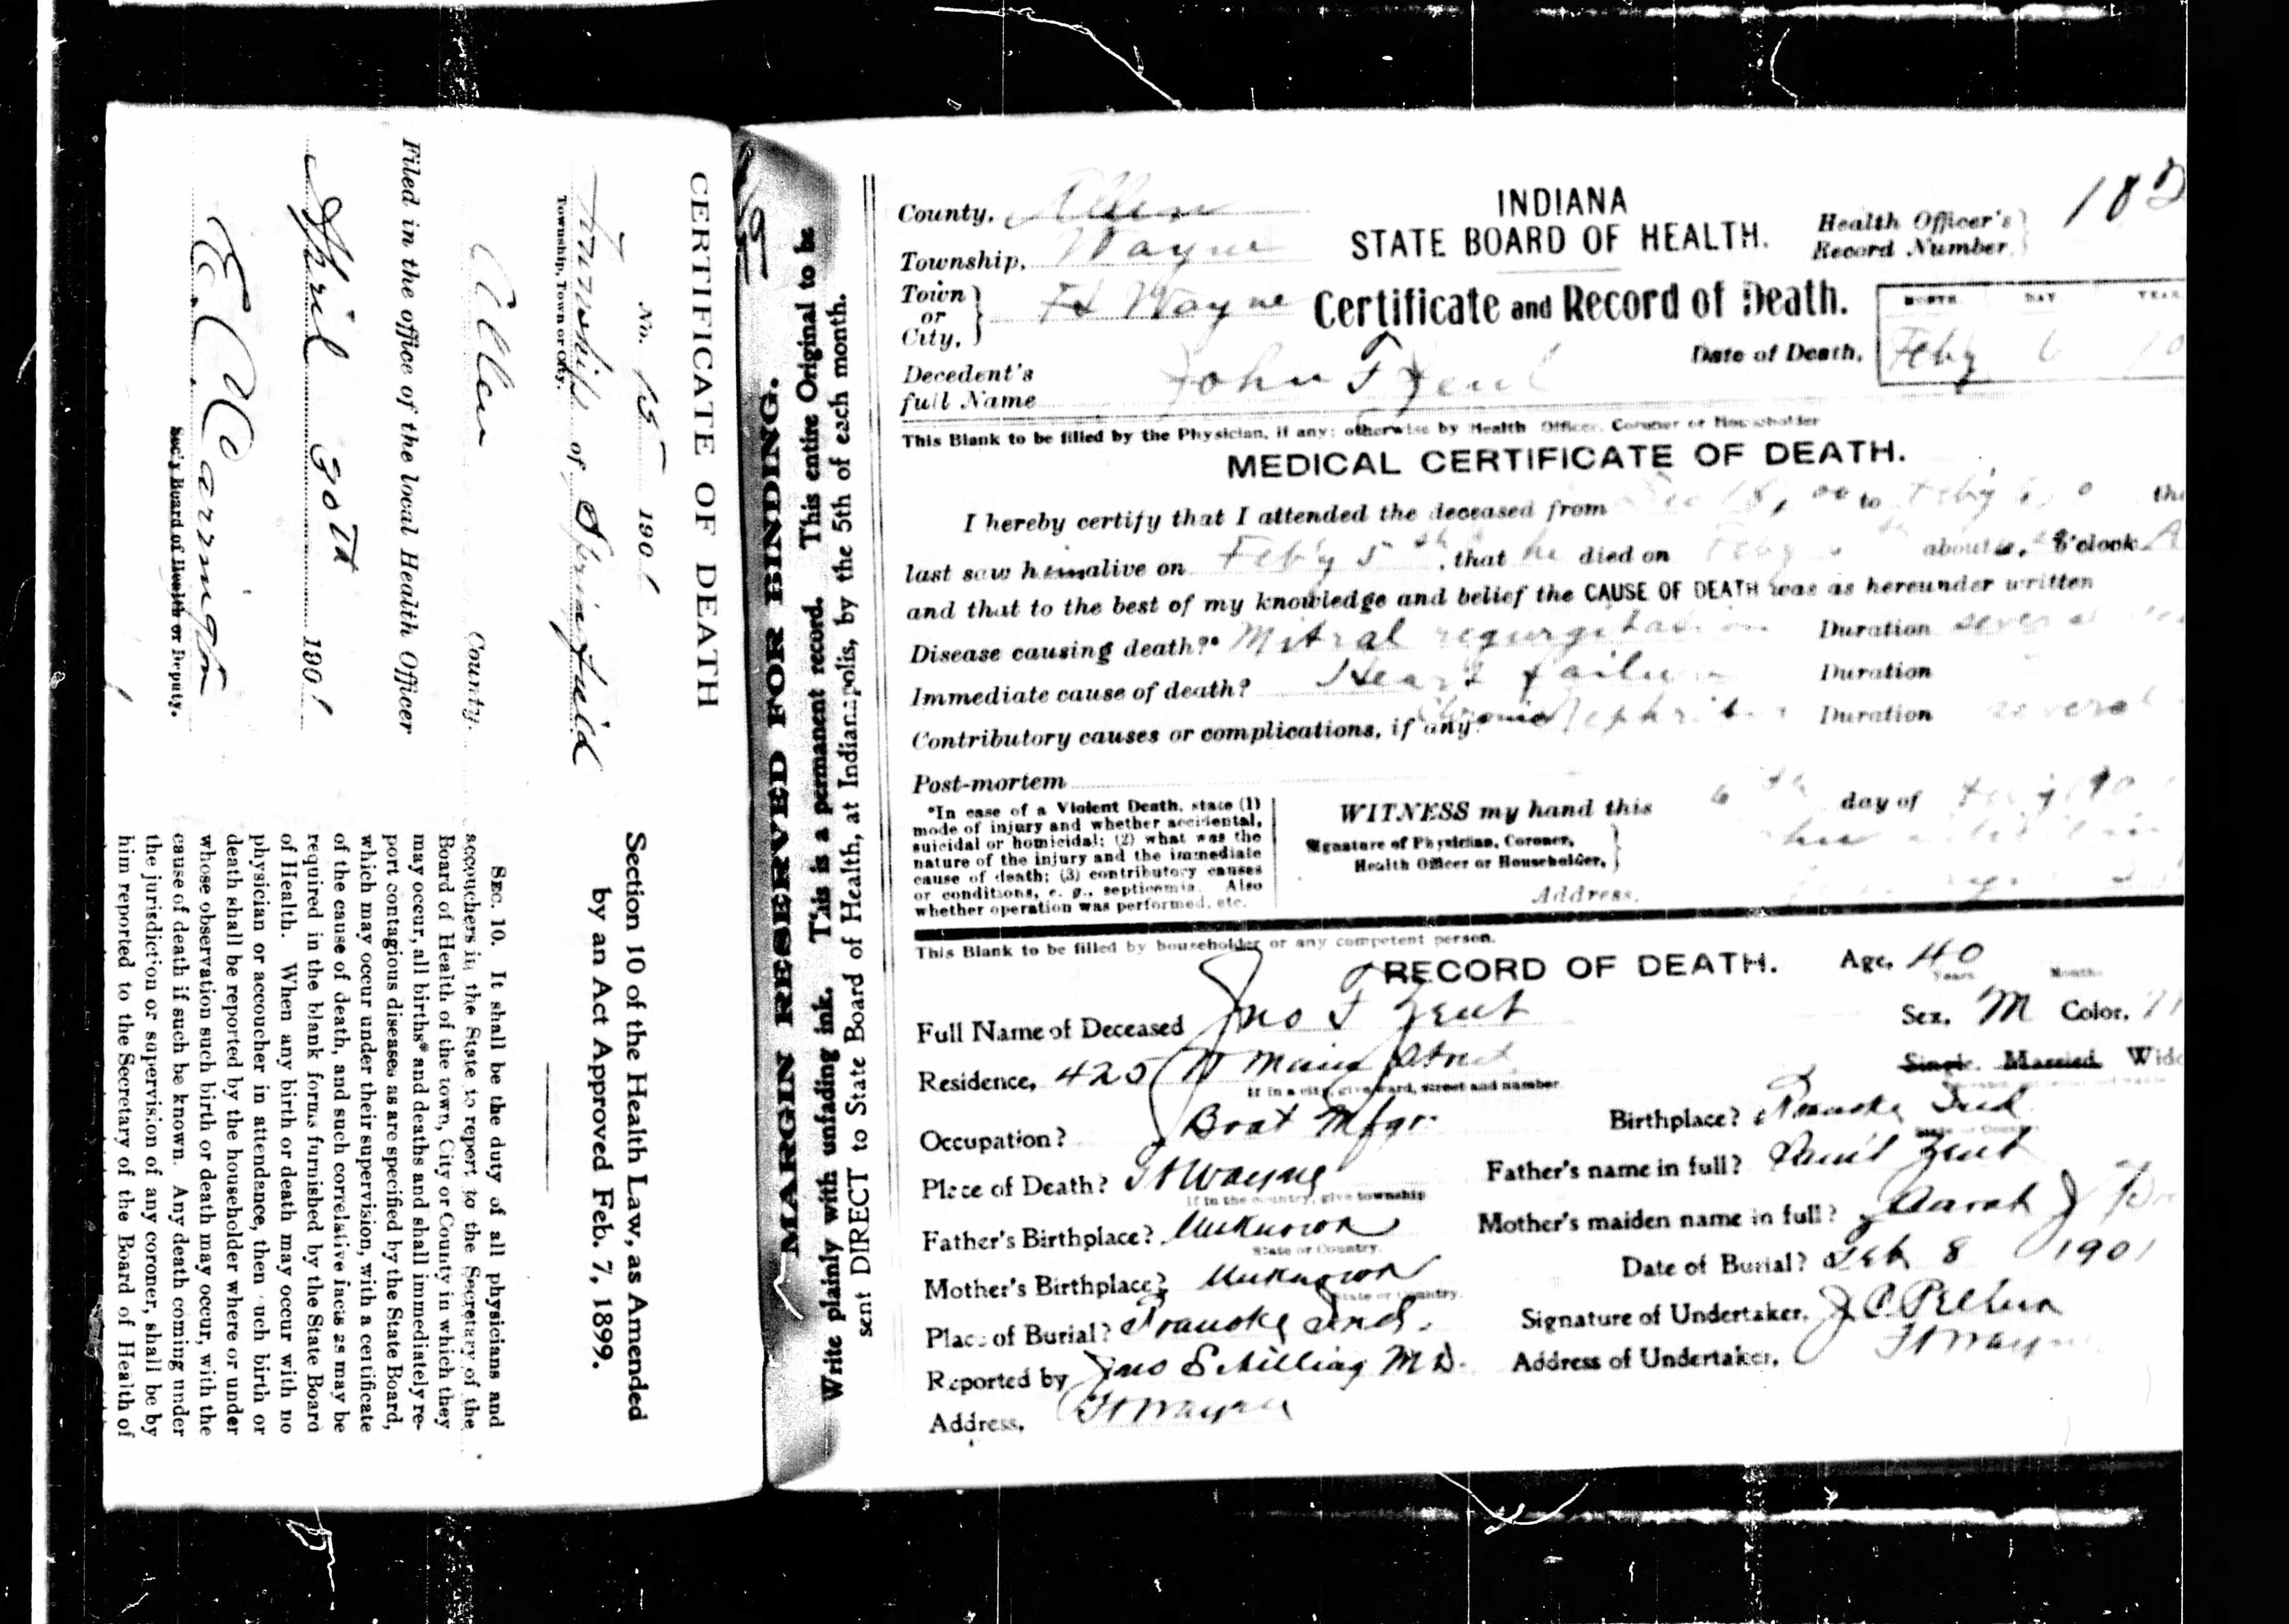 CERTIFICATE OF DEATH
No. 15 1901
Township of Springfield
Township, Town or City.
Allen County.
Filed in the office of the local Health Officer
April 30th 1901
Sec'y Board of Health or Deputy.
Section 10 of the Health Law, as Amended
by an Act Approved Feb. 7, 1899.
SEC. 10. It shall be the duty of all physicians and
accouchers in the State to report to the Secretary of the
Board of Health of the town, City or County in which they
may occur, all births* and deaths and shall immediately re-
port contagious diseases as are specified by the State Board,
which may occur under their supervision, with a certificate
of the cause of death, and such correlative facts as may be
required in the blank forms furnished by the State Board
of Health. When any birth or death may occur with no
physician or accoucher in attendance, then such birth or
death shall be reported by the householder where or under
whose observation such birth or death may occur, with the
cause of death if such be known. Any death coming under
the jurisdiction or supervision of any coroner, shall be by
him reported to the Secretary of the Board of Health of
MARGIN RESERVED FOR BINDING.
Write plainly with unfading ink. This is a permanent record. This entire Original to be
sent DIRECT to State Board of Health, at Indianapolis, by the 5th of each month.
INDIANA
STATE BOARD OF HEALTH.
Certificate and Record of Death.
Health Officer's
Record Number.
County, Allen
Township, Wayne
Town
or
City, Ft Wayne
MONTH DAY YEAR
Date of Death, Feby 6
Decedent's
full Name John F Zent
This Blank to be filled by the Physician, if any; otherwise by Health Officer, Coroner or Householder
MEDICAL CERTIFICATE OF DEATH.
I hereby certify that I attended the deceased from Dec 18, 00 to Feby
last saw him alive on Feby 5th, that he died on Feby about o'clock A
and that to the best of my knowledge and belief the CAUSE OF DEATH was as hereunder written
Disease causing death?* Mitral regurgitation Duration several
Immediate cause of death? Heart failure Duration
Contributory causes or complications, if any? Chronic Nephritis Duration several
Post-mortem
*In case of a Violent Death, state (1)
mode of injury and whether accidental,
suicidal or homicidal; (2) what was the
nature of the injury and the immediate
cause of death; (3) contributory causes
or conditions, e. g., septicemia. Also
whether operation was performed, etc.
WITNESS my hand this 6th day of Feby 190
Signature of Physician, Coroner,
Health Officer or Householder,
Address,
This Blank to be filled by householder or any competent person.
RECORD OF DEATH. Age, 40
Years Months
Full Name of Deceased Jno F Zent
Sex, M Color,
Residence, 425 W Main Street
If in a city, give ward, street and number
Single Married Wido
Occupation? Boat Mfgr.
Birthplace? Roanoke Ind
State or Country
Place of Death? Ft Wayne
If in the country, give township
Father's name in full? Zent
Father's Birthplace? Unknown
State or Country.
Mother's maiden name in full? Sarah J
Mother's Birthplace? Unknown
State or Country.
Date of Burial? Feb 8 1901
Place of Burial? Roanoke Ind.
Signature of Undertaker,
Reported by Jno Schilling M D.
Address of Undertaker, Ft Wayne
Address, Ft Wayne